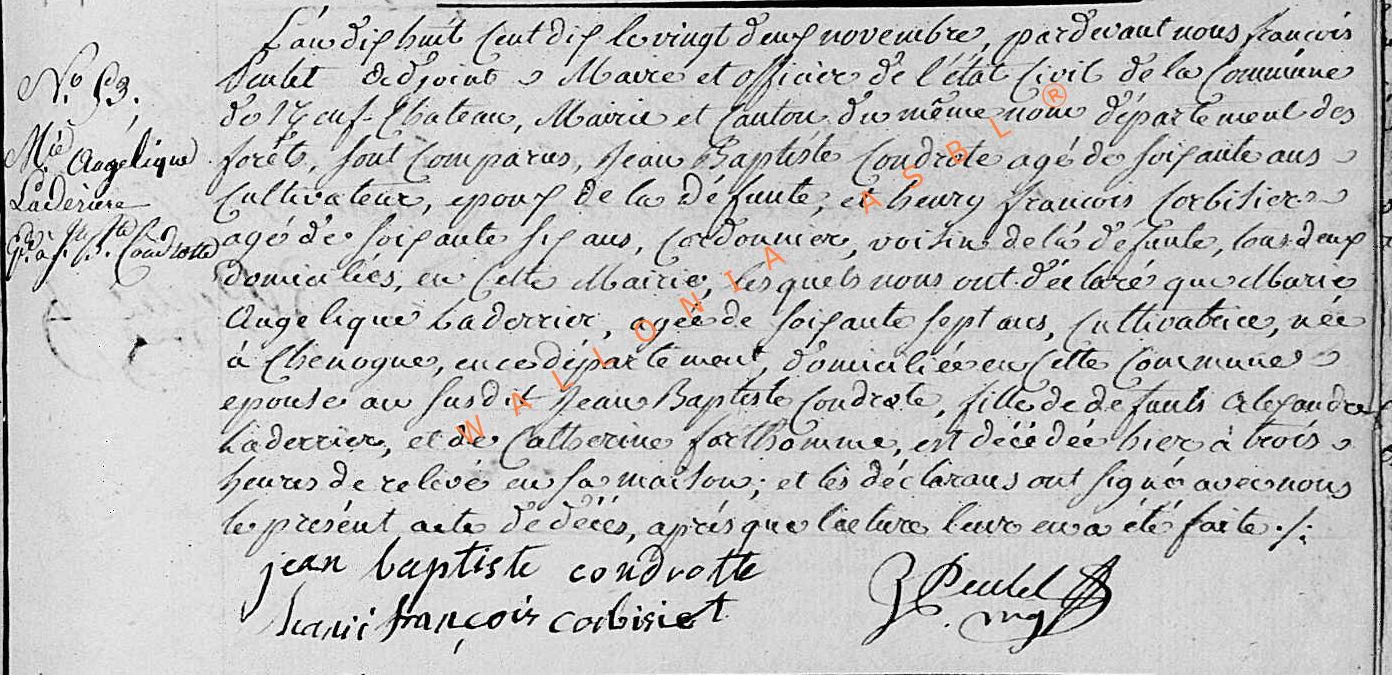 L'an dix huit cent dix le vingt deux novembre, pardevant nous françois
Peulet adjoint Maire et officier de l'état Civil de la Commune
de Neuf-Chateau, Mairie et Canton du même nom département des
forêts, sont comparus, Jean Baptiste Condrote agé de soixante ans
Cultivateur, epoux de la défunte, et henry françois Corbisier
agé de soixante six ans, Cordonnier, voisin de la défunte, tous deux
domiciliés, en Cette Mairie, lesquels nous ont déclaré que Marie
Angelique Laderrier, agée de soixante sept ans, Cultivatrice, née
à Chenogne, en ce département, domiciliée en Cette Commune
epouse au susdit Jean Baptiste Condrote, fille de defunts Alexandre
Laderrier, et de Catherine forthomme, est décédée hier à trois
heures de relevé en sa maison; et les déclarans ont signé avec nous
le présent acte de décès, après que lecture leur en a été faite ./.
N.o 53.
M.ie Angelique
Laderiere
à J. B.te Condrotte
jean baptiste condrotte
françois corbisiet
WALLONIA ASBL ®